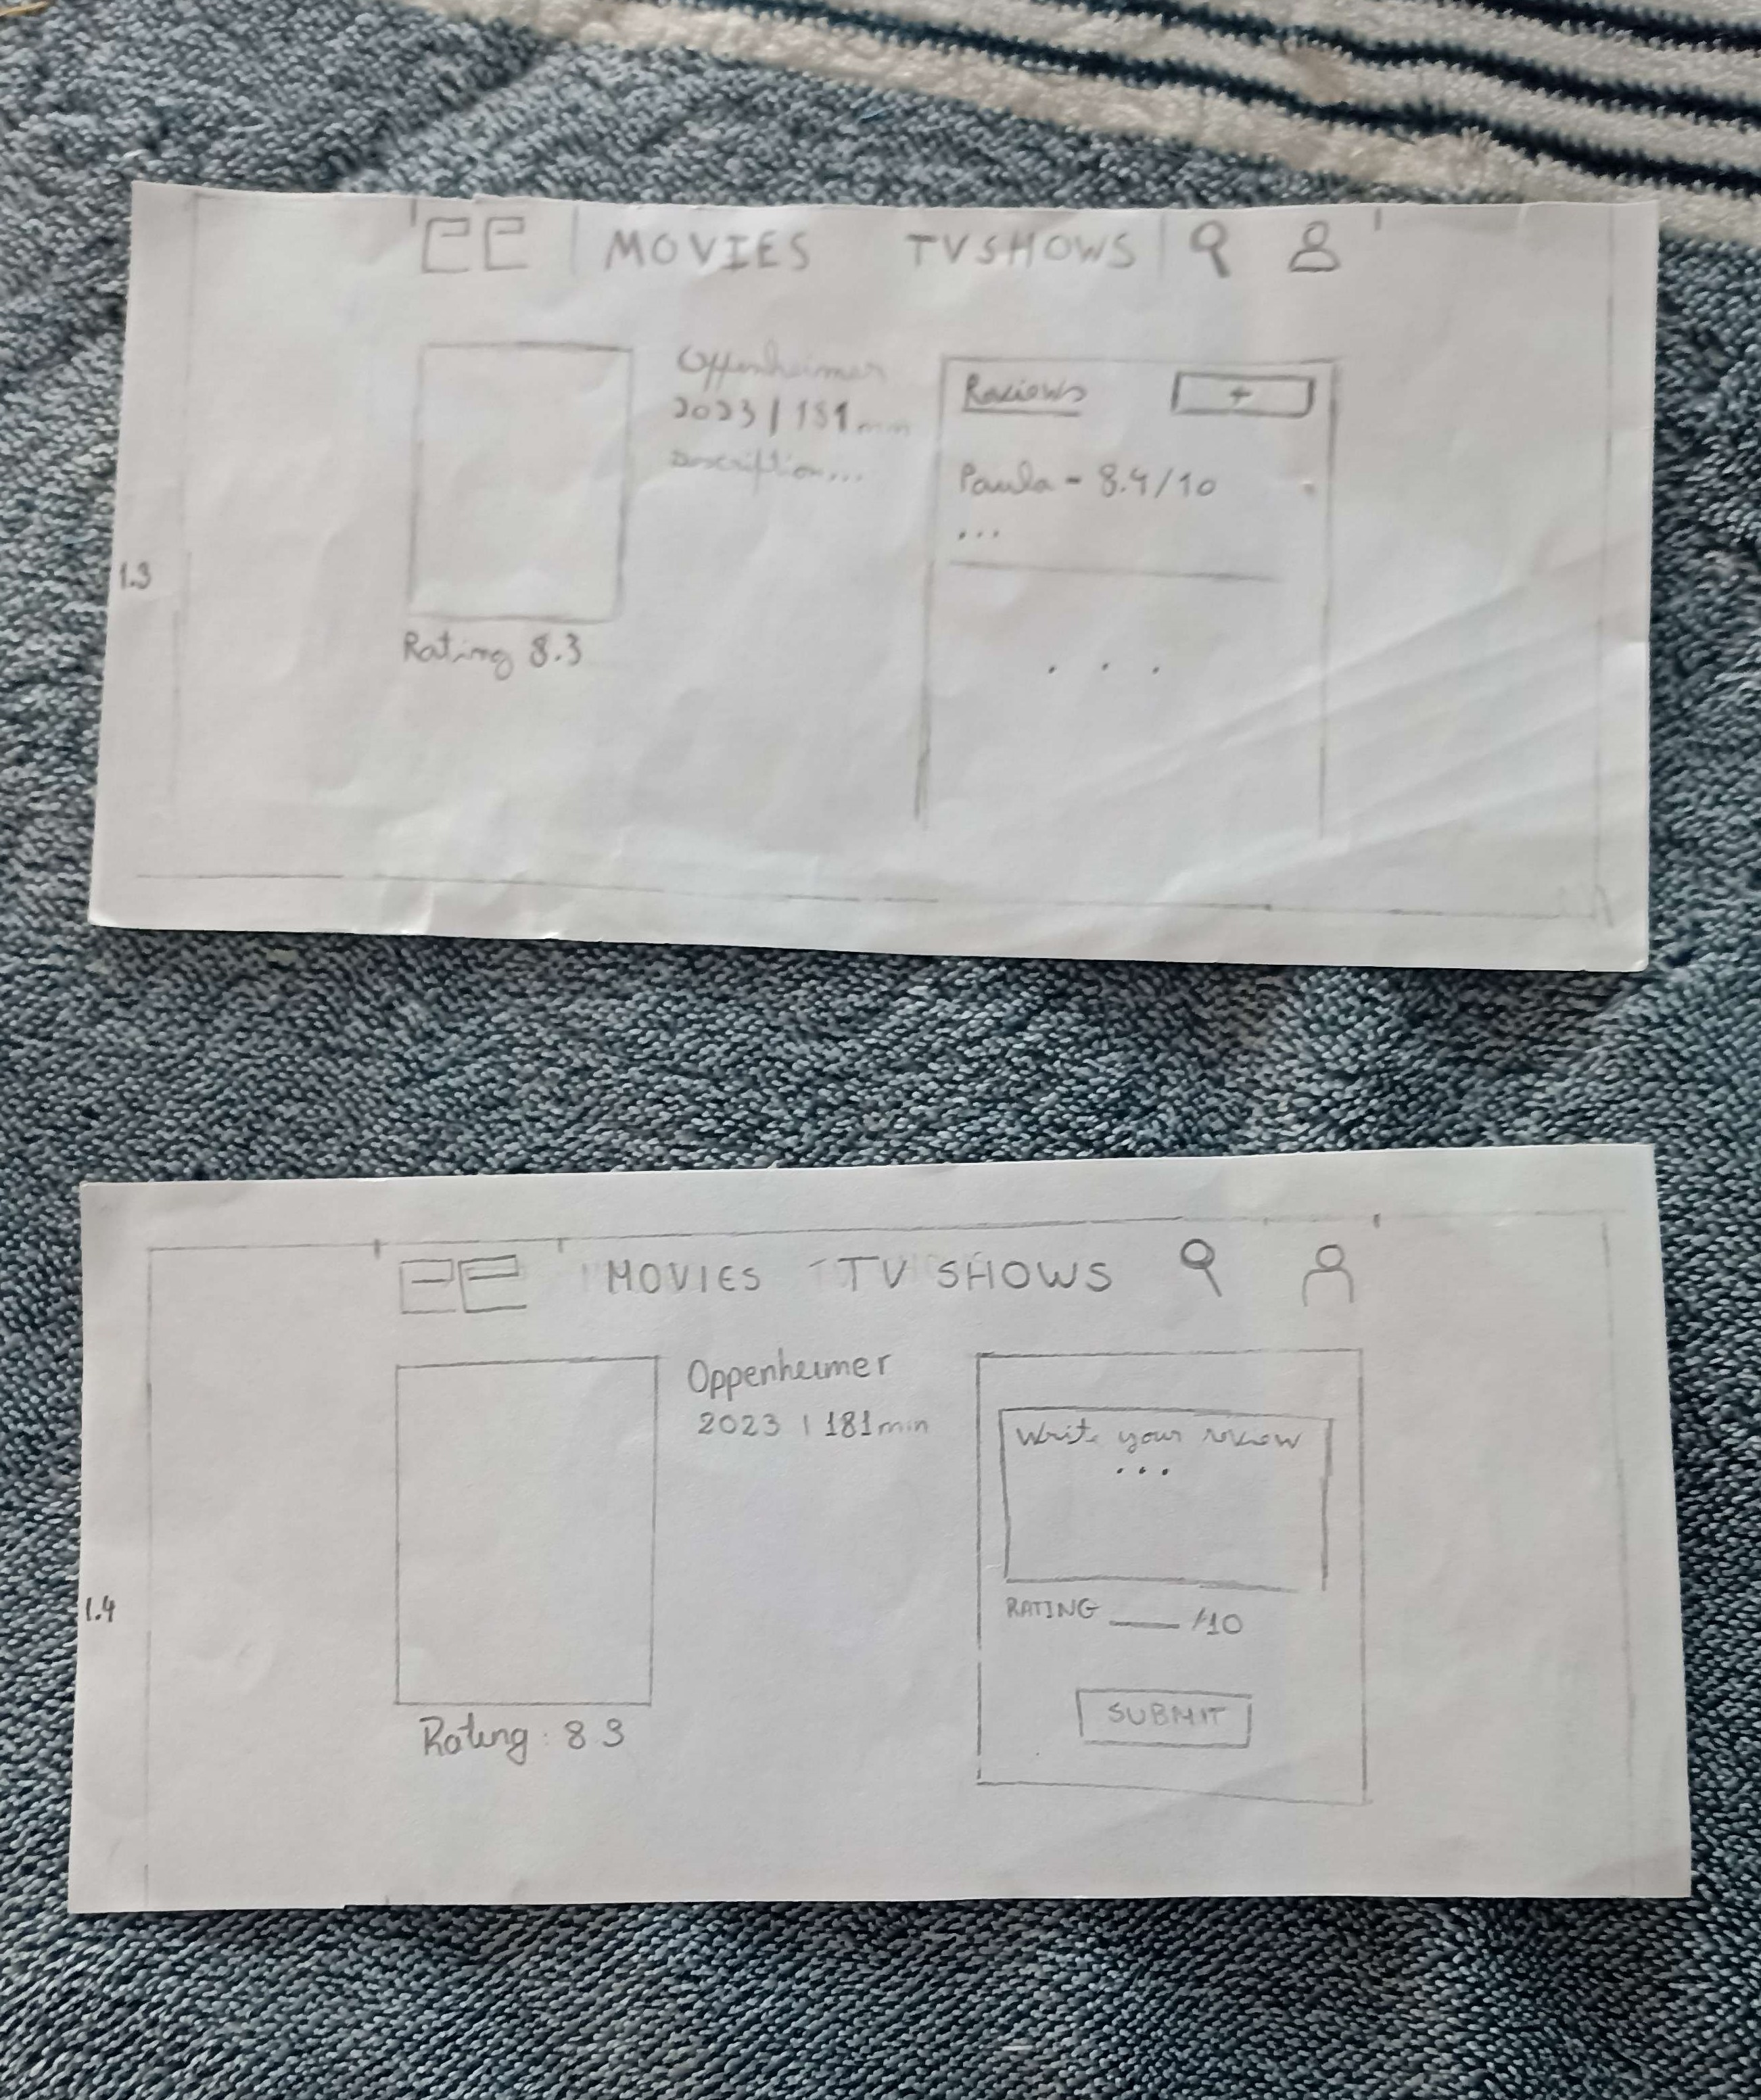 MOVIES TV SHOWS
Oppenheimer
2023 | 181 min
Description...
Reviews +
Paula - 8.4/10
...
. . .
Rating 8.3
1.3
MOVIES TV SHOWS
Oppenheimer
2023 | 181min
Write your review
...
RATING ____ /10
SUBMIT
Rating: 8 3
1.4